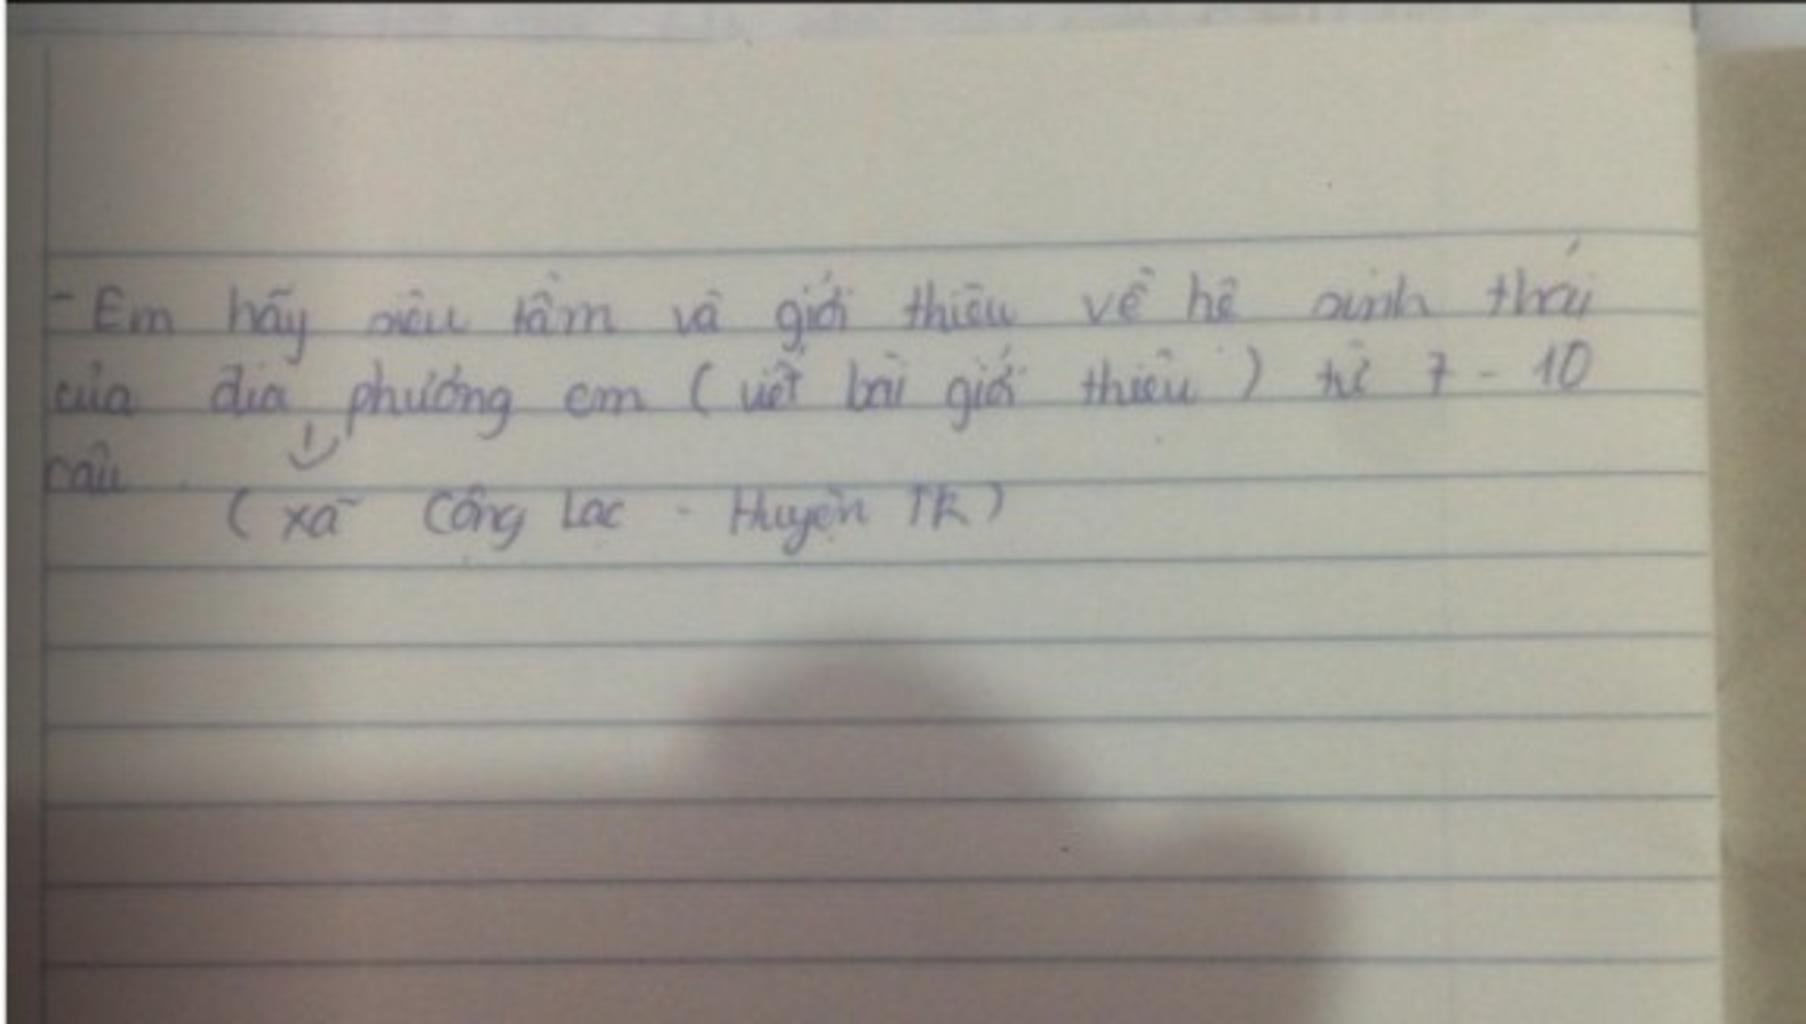 - Em hãy siêu tầm và giới thiệu về hệ sinh thái
của địa phương em ( viết bài giới thiệu ) từ 7 - 10
câu .
( xã Cộng Lạc - Huyện TK )